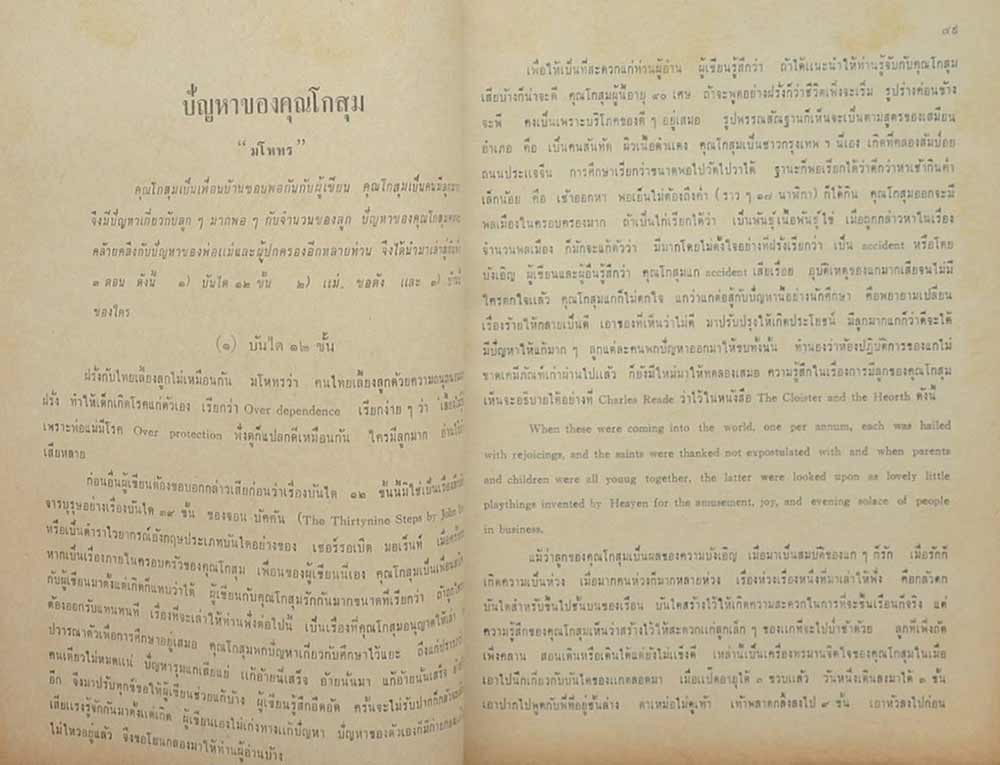 ปัญหาของคุณโกสุม
“มโหทร”
คุณโกสุมเป็นเพื่อนบ้านชอบพอกันกับผู้เขียน คุณโกสุมเป็นคนมีลูกมาก
จึงมีปัญหาเกี่ยวกับลูก ๆ มากพอ ๆ กับจำนวนของลูก ปัญหาของคุณโกสุม
คล้ายคลึงกับปัญหาของพ่อแม่และผู้ปกครองอีกหลายท่าน จึงได้นำมาเล่าสู่กันฟัง
๓ ตอน ดังนี้ ๑) บันได ๑๒ ขั้น ๒) แม่. ขอตัง และ ๓)
ของใคร
(๑) บันได ๑๒ ขั้น
ฝรั่งกับไทยเลี้ยงลูกไม่เหมือนกัน มโหทรว่า คนไทยเลี้ยงลูกด้วยความถนุถนอม
ฝรั่ง ทำให้เด็กเกิดโรคแก่ตัวเอง เรียกว่า Over dependence เรียกง่าย ๆ ว่า
เพราะพ่อแม่มีโรค Over protection ฟังดูก็แปลกดีเหมือนกัน ใครมีลูกมาก
เสียหลาย
ก่อนอื่นผู้เขียนต้องขอบอกกล่าวเสียก่อนว่าเรื่องบันได ๑๒ ขั้นนี้มิใช่เป็นเรื่อง
จารบุรุษอย่างเรื่องบันได ๓๙ ขั้น ของจอน บัคคัน (The Thirtynine Steps by John
หรือเป็นตำราไวยากรณ์อังกฤษประเภทบันไดอย่างของ เซอร์รอเบิต มอเร็นท์
หากเป็นเรื่องภายในครอบครัวของคุณโกสุม เพื่อนของผู้เขียนนี่เอง คุณโกสุมเป็นเพื่อน
กับผู้เขียนมาตั้งแต่เกิดก็แทบว่าได้ ผู้เขียนกับคุณโกสุมรักกันมากขนาดที่เรียกว่า
ต้องออกรับแทนทันที เรื่องที่จะเล่าให้ท่านฟังต่อไปนี้ เป็นเรื่องที่คุณโกสุมอนุญาตให้เล่า
ปวารณาตัวเพื่อการศึกษาอยู่เสมอ คุณโกสุมพกปัญหาเกี่ยวกับศึกษาไว้แยะ
คนเดียวไม่หมดแน่ ปัญหารุมแกเสียแย่ แก้อ้ายนี่เสร็จ อ้ายนั่นมา แก้อ้ายนั่นเสร็จ
อีก จึงมาปรับทุกข์ขอให้ผู้เขียนช่วยแก้บ้าง ผู้เขียนรู้สึกอึดอัด ครั้นจะไม่รับปากก็
เสียแรงรู้จักกันมาตั้งแต่เกิด ผู้เขียนเองไม่เก่งทางแก้ปัญหา ปัญหาของตัวเองก็มีก่ายกอง
ไม่ไหวอยู่แล้ว จึงขอโยนกลองมาให้ท่านผู้อ่านบ้าง
๔๙
เพื่อให้เป็นที่สะดวกแก่ท่านผู้อ่าน ผู้เขียนรู้สึกว่า ถ้าได้แนะนำให้ท่านรู้จักกับคุณโกสุม
เสียบ้างก็น่าจะดี คุณโกสุมผู้นี้อายุ ๔๐ เศษ ถ้าจะพูดอย่างฝรั่งก็ว่าชีวิตเพิ่งจะเริ่ม รูปร่างค่อนข้าง
จะพี คงเป็นเพราะบริโภคของดี ๆ อยู่เสมอ รูปพรรณสัณฐานก็เห็นจะเป็นตามสูตรของเสมียน
อำเภอ คือ เป็นคนสันทัด ผิวเนื้อดำแดง คุณโกสุมเป็นชาวกรุงเทพ ฯ นี่เอง เกิดที่คลองส้มป่อย
ถนนประแจจีน การศึกษาเรียกว่าขนาดพอไปวัดไปวาได้ ฐานะก็พอเรียกได้ว่าดีกว่าหาเช้ากินค่ำ
เล็กน้อย คือ เช้าออกหา พอเย็นไม่ต้องถึงค่ำ (ราว ๆ ๑๗ นาฬิกา) ก็ได้กิน คุณโกสุมออกจะมี
พลเมืองในครอบครองมาก ถ้าเป็นไก่เรียกได้ว่า เป็นพันธุ์เนื้อพันธุ์ไข่ เมื่อถูกกล่าวหาในเรื่อง
จำนวนพลเมือง ก็มักจะแก้ตัวว่า มีมากโดยไม่ตั้งใจอย่างที่ฝรั่งเรียกว่า เป็น accident หรือโดย
บังเอิญ ผู้เขียนและผู้อื่นรู้สึกว่า คุณโกสุมแก accident เสียเรื่อย อุบัติเหตุของแกมากเสียจนไม่มี
ใครตกใจแล้ว คุณโกสุมแกก็ไม่ตกใจ แกว่าแกต่อสู้กับปัญหานี้อย่างนักศึกษา คือพยายามเปลี่ยน
เรื่องร้ายให้กลายเป็นดี เอาของที่เห็นว่าไม่ดี มาปรับปรุงให้เกิดประโยชน์ มีลูกมากแกก็ว่าดีจะได้
มีปัญหาให้แก้มาก ๆ ลูกแต่ละคนพกปัญหาออกมาให้ขบทั้งนั้น ทำนองว่าห้องปฏิบัติการของแกไม่
ขาดเคมีภัณฑ์เก่าผ่านไปแล้ว ก็ยังมีใหม่มาให้ทดลองเสมอ ความรู้สึกในเรื่องการมีลูกของคุณโกสุม
เห็นจะอธิบายได้อย่างที่ Charles Reade ว่าไว้ในหนังสือ The Cloister and the Heorth ดังนี้
When these were coming into the world, one per annum, each was hailed
with rejoicings, and the saints were thanked not expostulated with and when parents
and children were all young together, the latter were looked upon as lovely little
playthings invented by Heayen for the amusement, joy, and evening solace of people
in business.
แม้ว่าลูกของคุณโกสุมเป็นผลของความบังเอิญ เมื่อมาเป็นสมบัติของแก ๆ ก็รัก เมื่อรักก็
เกิดความเป็นห่วง เมื่อมากคนห่วงก็มากหลายห่วง เรื่องห่วงเรื่องหนึ่งที่มาเล่าให้ฟัง คือกลัวตก
บันไดสำหรับขึ้นไปชั้นบนของเรือน บันไดสร้างไว้ให้เกิดความสะดวกในการที่จะขึ้นเรือนก็จริง แต่
ความรู้สึกของคุณโกสุมเห็นว่าสร้างไว้ให้สะดวกแก่ลูกเล็ก ๆ ของแกที่จะไปป่าช้าด้วย ลูกที่เพิ่งถัด
เพิ่งคลาน สอนเดินหรือเดินได้แต่ยังไม่แข็งดี เหล่านี้เป็นเครื่องทรมานจิตใจของคุณโกสุมในเมื่อ
เอาไปนึกเกี่ยวกับบันไดของแกตลอดมา เมื่อแป๊ดอายุได้ ๓ ขวบแล้ว วันหนึ่งเดินลงมาได้ ๓ ขั้น
เอาปากไปพูดกับพี่ที่อยู่ชั้นล่าง ตาเหม่อไม่ดูเท้า เท้าพลาดกลิ้งลงไป ๙ ขั้น เอาหัวลงไปก่อน